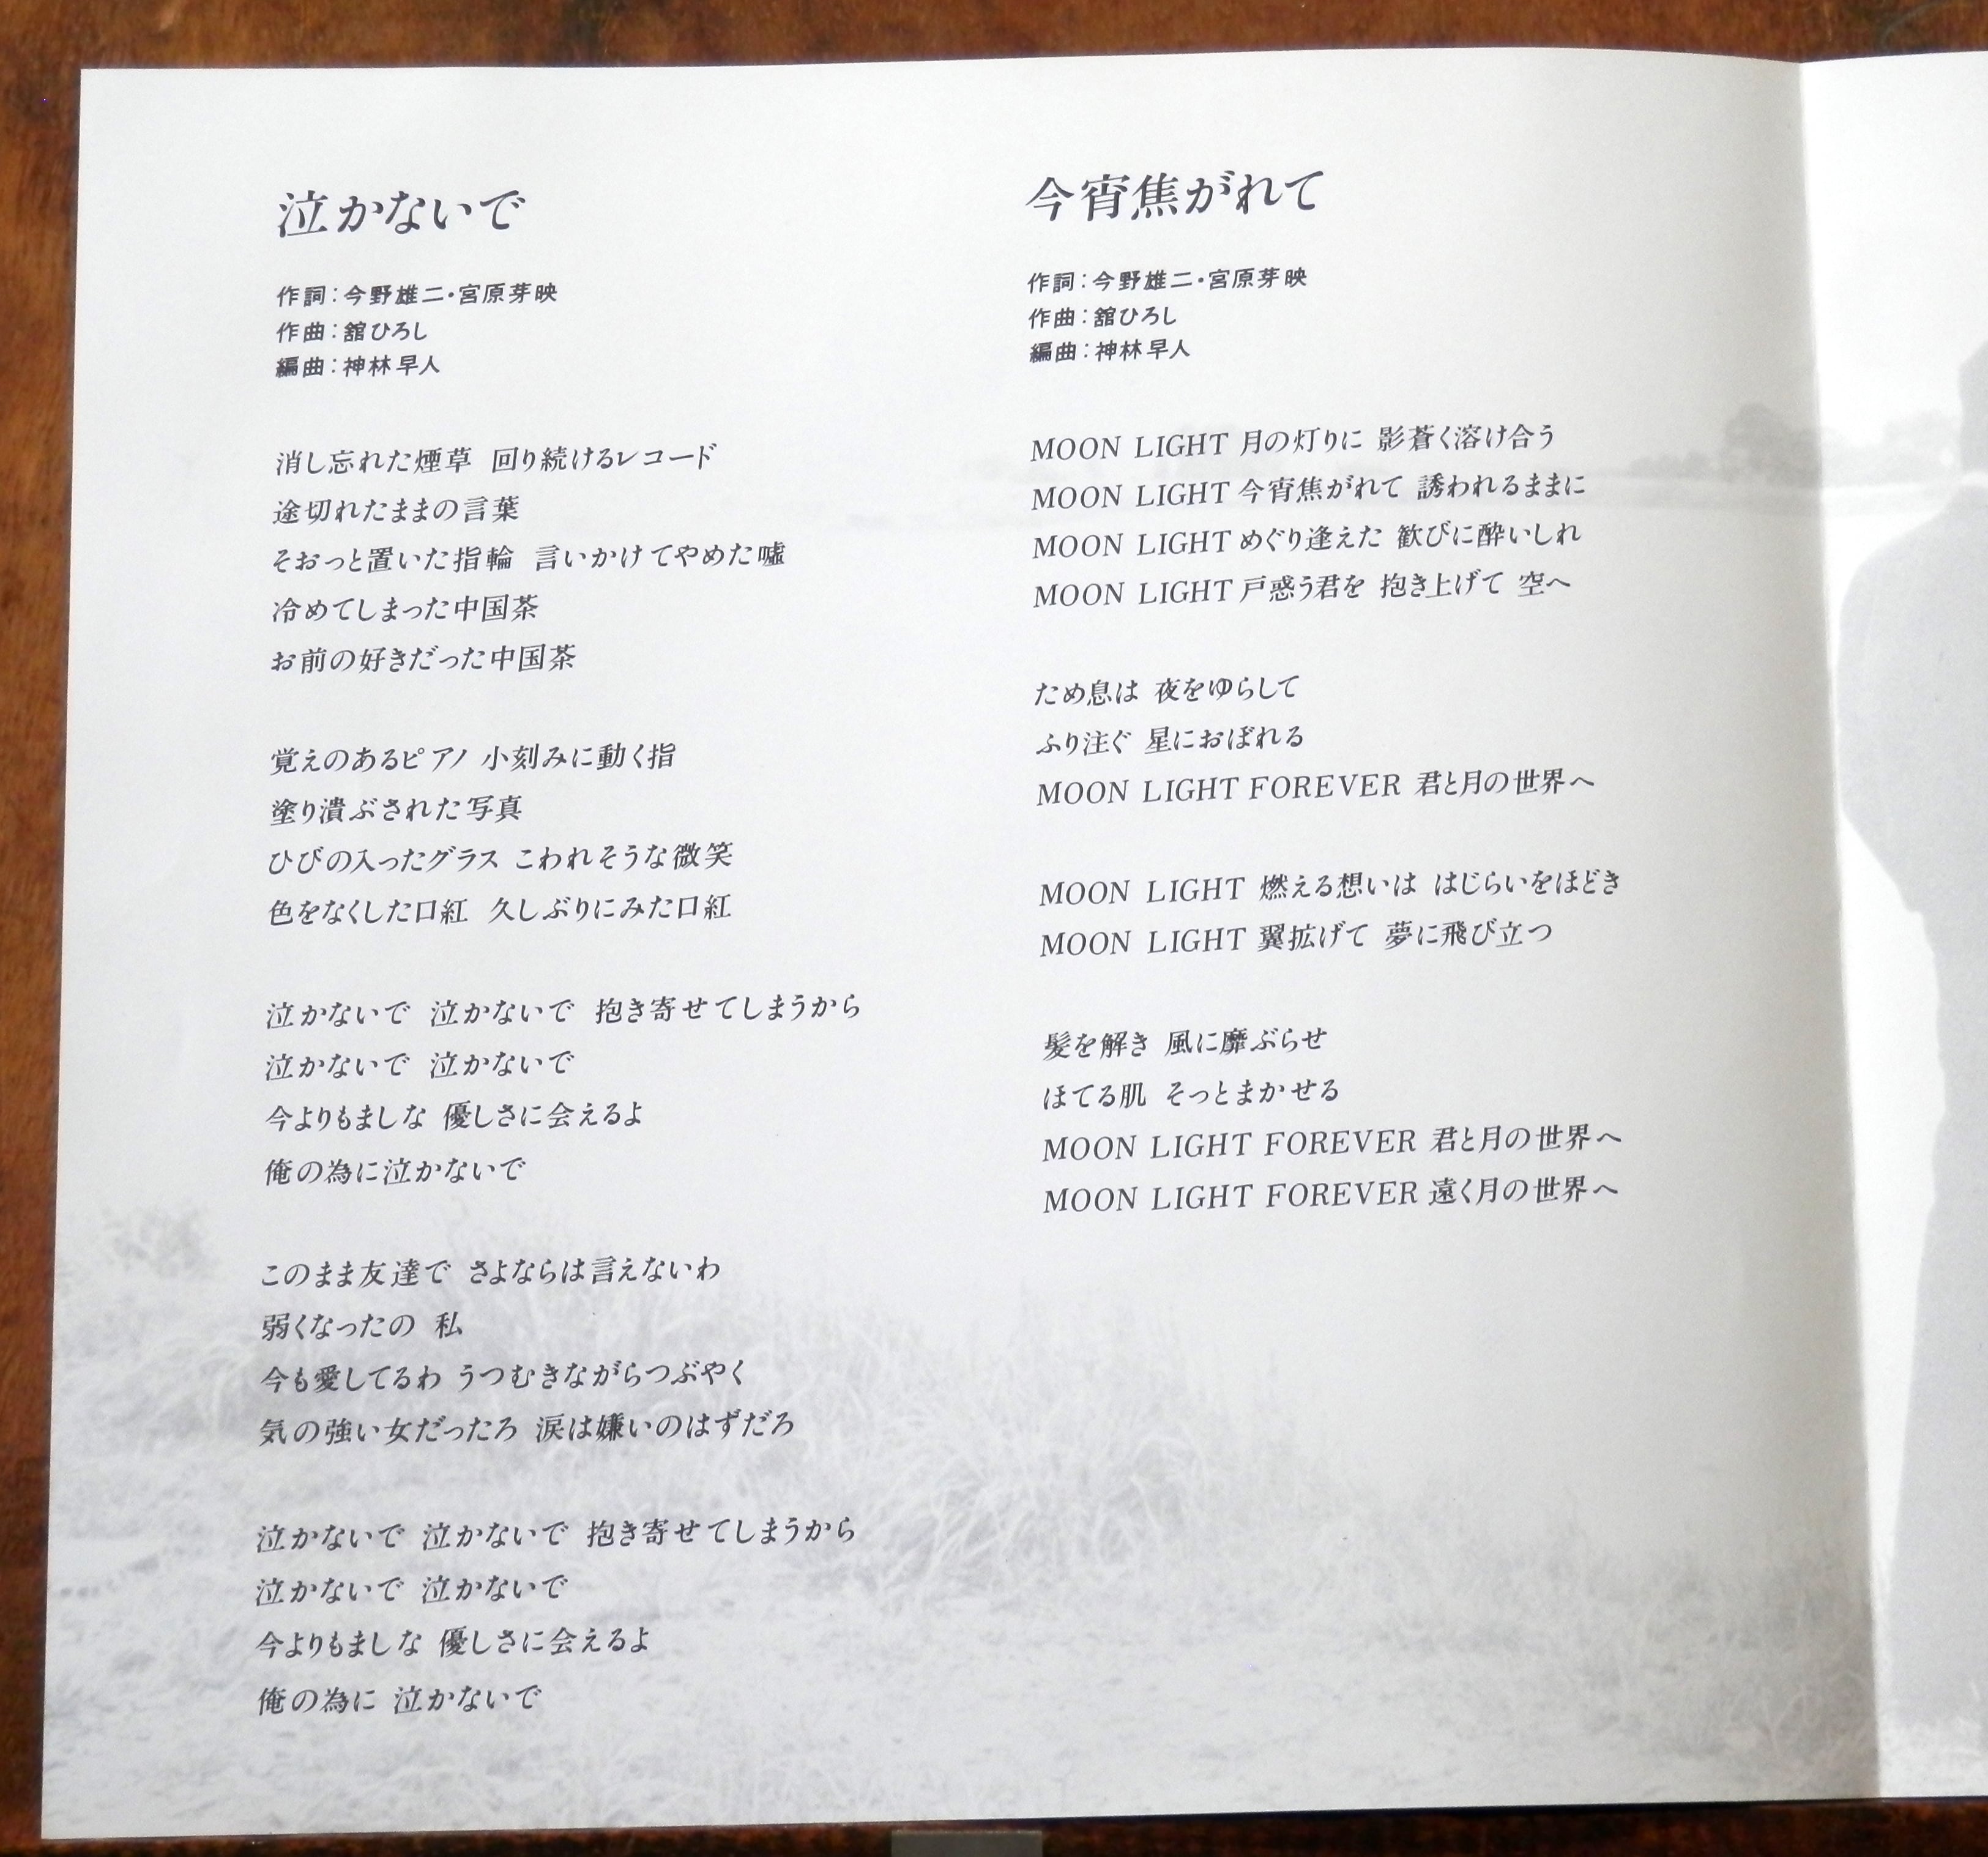 泣かないで
作詞：今野雄二・宮原芽映
作曲：舘ひろし
編曲：神林早人
消し忘れた煙草 回り続けるレコード
途切れたままの言葉
そおっと置いた指輪 言いかけてやめた嘘
冷めてしまった中国茶
お前の好きだった中国茶
覚えのあるピアノ 小刻みに動く指
塗り潰ぶされた写真
ひびの入ったグラス こわれそうな微笑
色をなくした口紅 久しぶりにみた口紅
泣かないで 泣かないで 抱き寄せてしまうから
泣かないで 泣かないで
今よりもましな 優しさに会えるよ
俺の為に泣かないで
このまま友達で さよならは言えないわ
弱くなったの 私
今も愛してるわ うつむきながらつぶやく
気の強い女だったろ 涙は嫌いのはずだろ
泣かないで 泣かないで 抱き寄せてしまうから
泣かないで 泣かないで
今よりもましな 優しさに会えるよ
俺の為に 泣かないで
今宵焦がれて
作詞：今野雄二・宮原芽映
作曲：舘ひろし
編曲：神林早人
MOON LIGHT 月の灯りに 影蒼く溶け合う
MOON LIGHT 今宵焦がれて 誘われるままに
MOON LIGHT めぐり逢えた 歓びに酔いしれ
MOON LIGHT 戸惑う君を 抱き上げて 空へ
ため息は 夜をゆらして
ふり注ぐ 星におぼれる
MOON LIGHT FOREVER 君と月の世界へ
MOON LIGHT 燃える想いは はじらいをほどき
MOON LIGHT 翼拡げて 夢に飛び立つ
髪を解き 風に靡ぶらせ
ほてる肌 そっとまかせる
MOON LIGHT FOREVER 君と月の世界へ
MOON LIGHT FOREVER 遠く月の世界へ